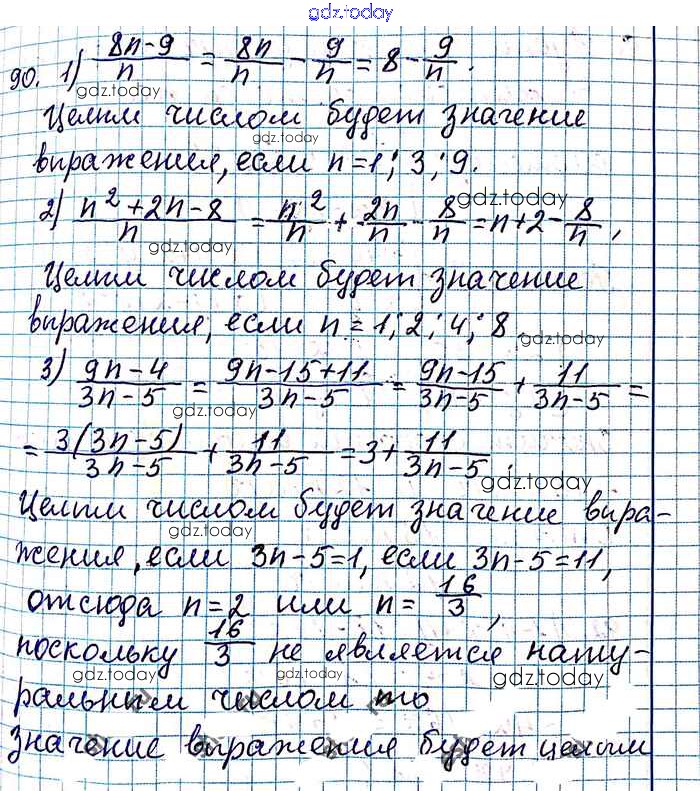 gdz.today
90. 1) \frac{8n-9}{n} = \frac{8n}{n} - \frac{9}{n} = 8 - \frac{9}{n}.
gdz.today
Целым числом будет значение
gdz.today
выражения, если n=1; 3; 9.
gdz.today
2) \frac{n^2+2n-8}{n} = \frac{n^2}{n} + \frac{2n}{n} - \frac{8}{n} = n+2-\frac{8}{n},
gdz.today
Целым числом будет значение
выражения, если n = 1; 2; 4; 8
gdz.today
3) \frac{9n-4}{3n-5} = \frac{9n-15+11}{3n-5} = \frac{9n-15}{3n-5} + \frac{11}{3n-5} =
gdz.today
= \frac{3(3n-5)}{3n-5} + \frac{11}{3n-5} = 3 + \frac{11}{3n-5},
gdz.today
Целым числом будет значение выра-
gdz.today
жения, если 3n-5=1, если 3n-5=11,
отсюда n=2 или n= \frac{16}{3},
gdz.today
поскольку \frac{16}{3} не является нату-
gdz.today
gdz.today
ральным числом то
значение выражения будет целым